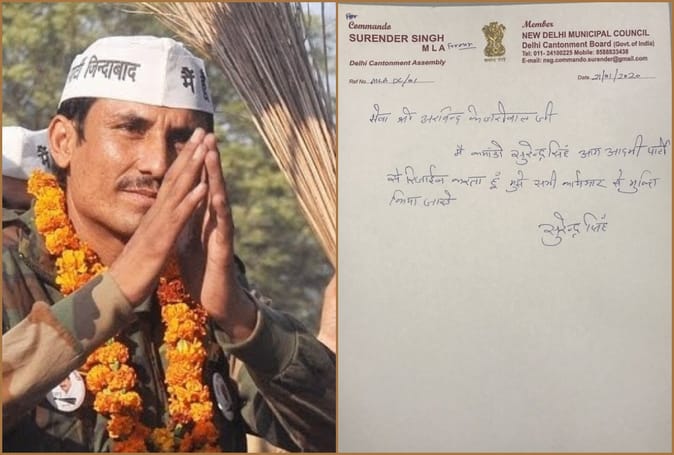 र्च जिन्दाबाद
मैं
Commando
SURENDER SINGH
M L A Former
Delhi Cantonment Assembly
Ref No. MLA DC/01
Member
NEW DELHI MUNICIPAL COUNCIL
Delhi Cantonment Board (Govt. of India)
Tel: 011- 24100225 Mobile: 8588833438
E-mail: nsg.commando.surender@gmail.com
Date 21/01/2020
सेवा श्री अरविन्द केजरीवाल जी
मै कमांडो सुरेन्द्र सिंह आम आदमी पार्टी
से रिजाईन करता हूं मुझे सभी कार्यभार से मुक्ति
किया जाये
सुरेन्द्र सिंह